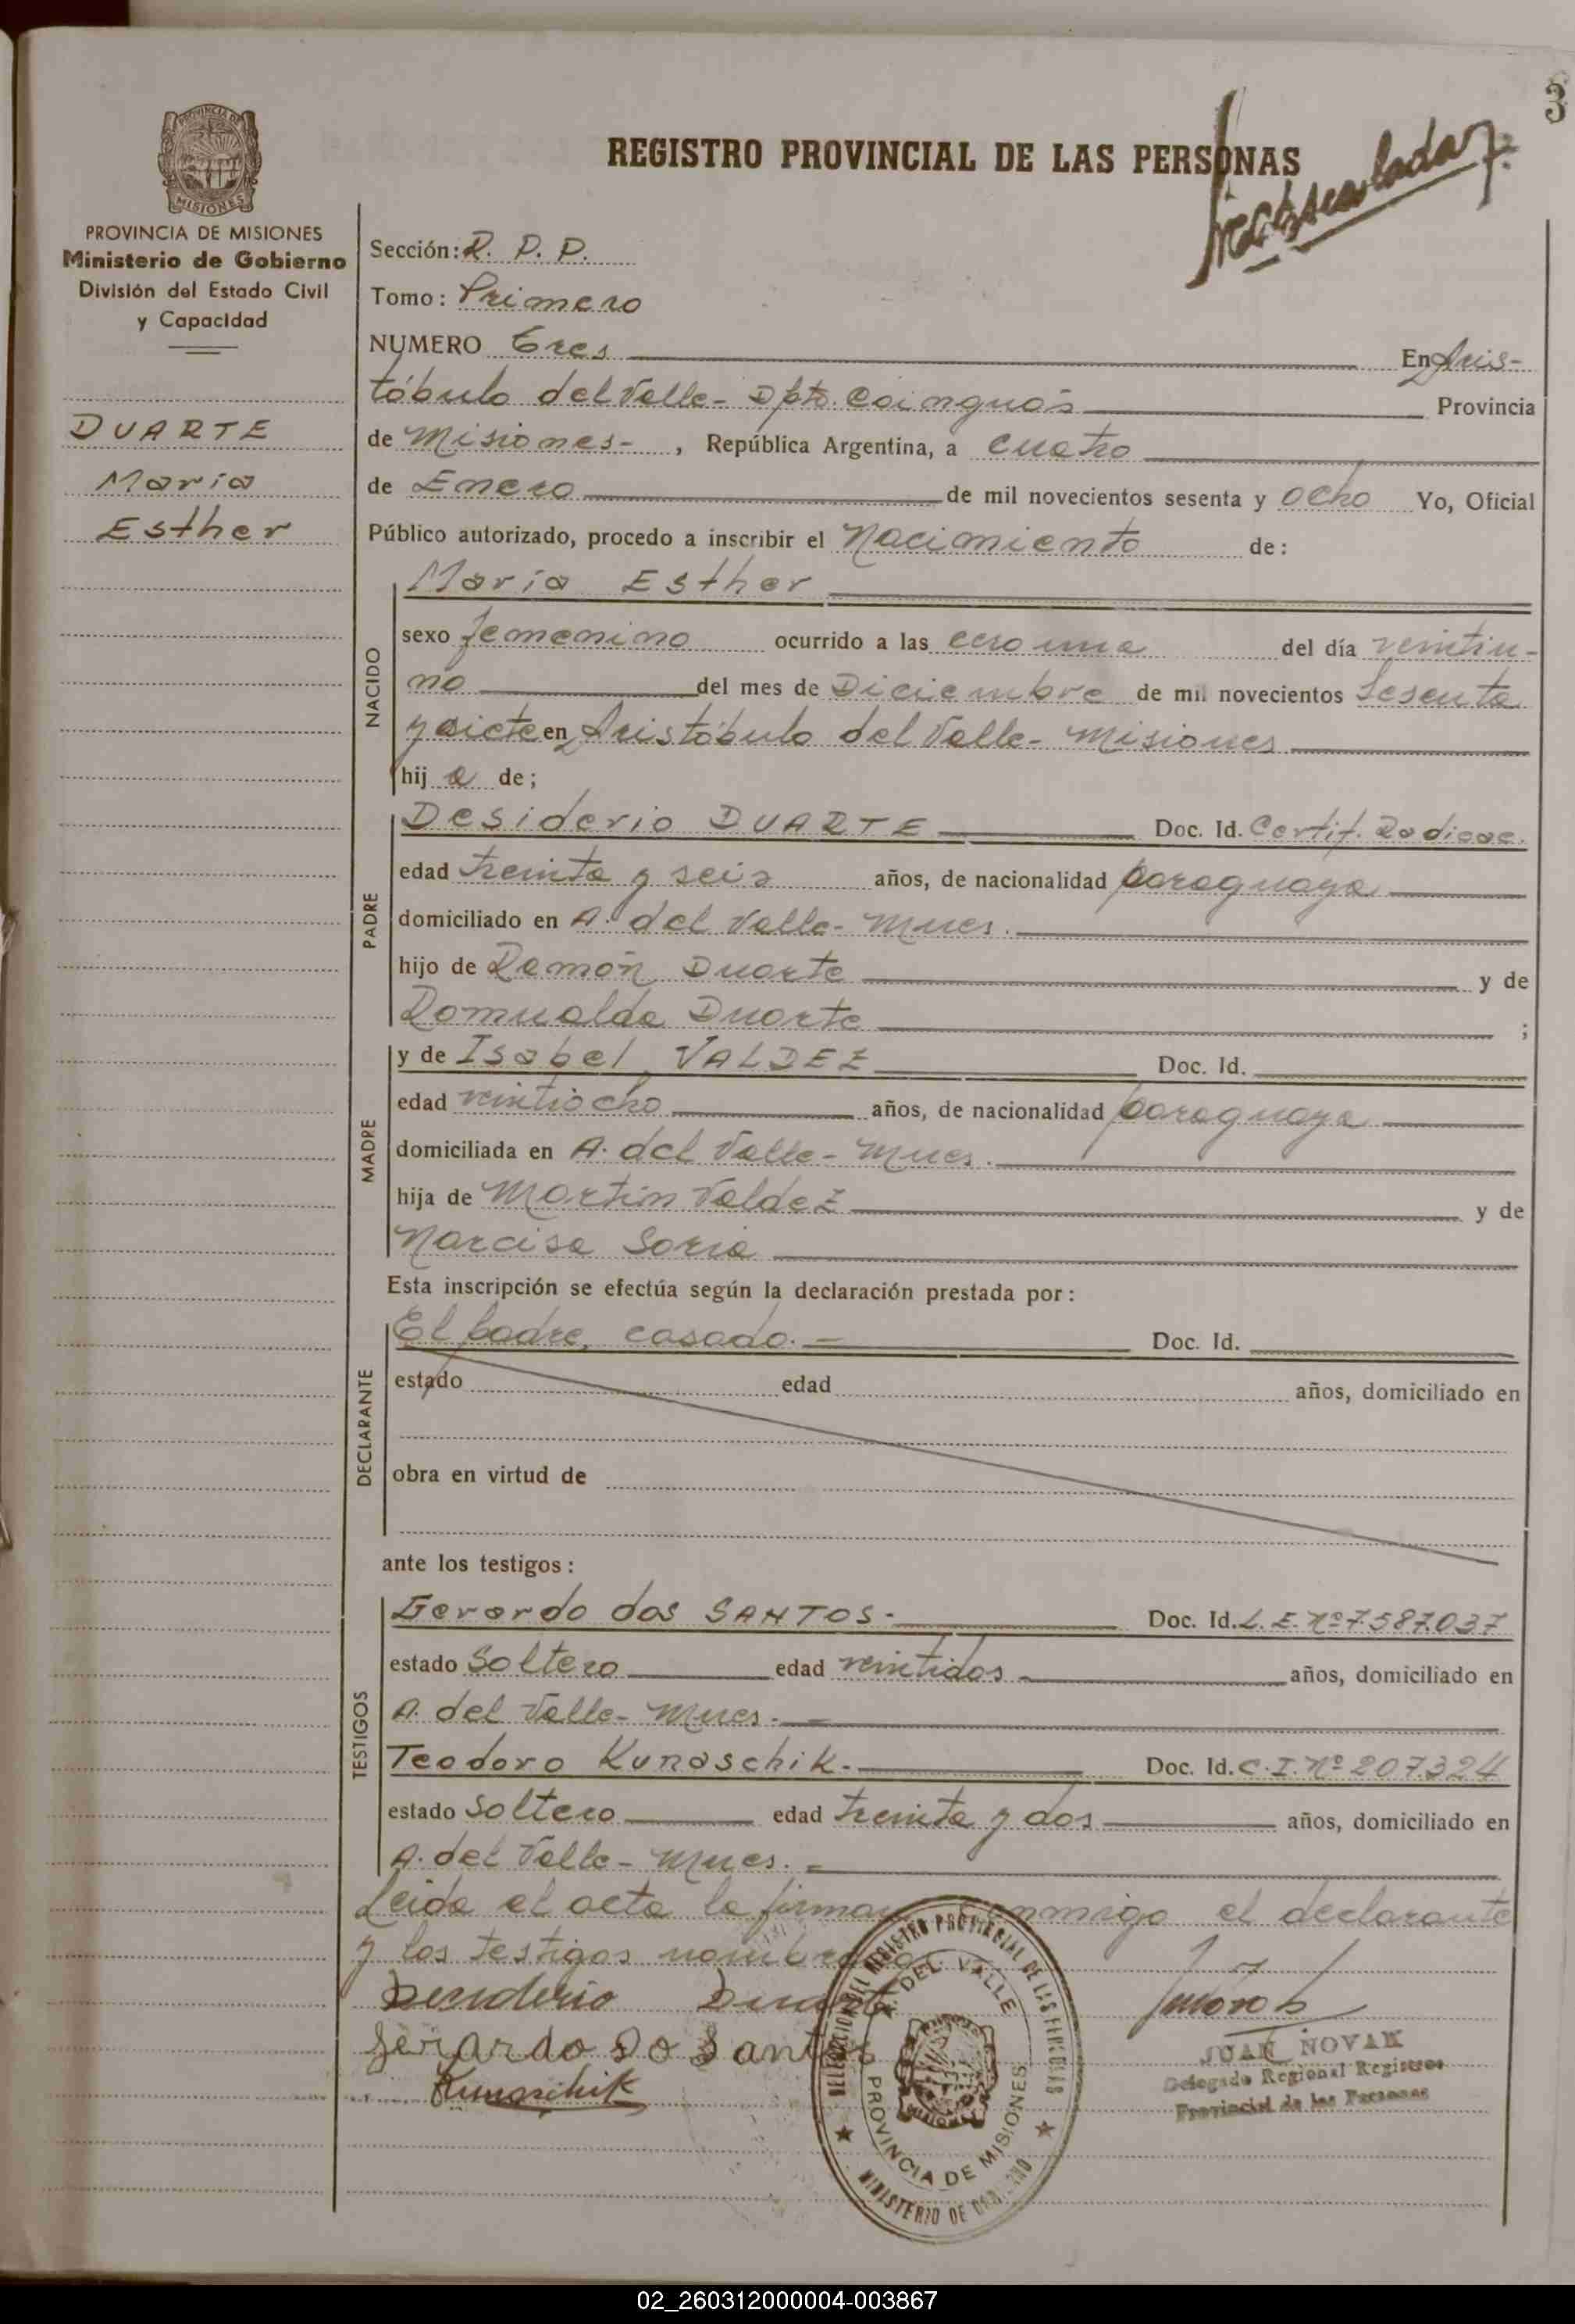 3
PROVINCIA DE MISIONES
MISIONES
REGISTRO PROVINCIAL DE LAS PERSONAS
PROVINCIA DE MISIONES
Ministerio de Gobierno
División del Estado Civil
y Capacidad
DUARTE
Maria
Esther
Sección: R. P. P.
Tomo: Primero
NUMERO Tres En Aris-
tóbulo del Valle- Dpto. Cainguás Provincia
de Misiones- , República Argentina, a cuatro
de Enero de mil novecientos sesenta y ocho Yo, Oficial
Público autorizado, procedo a inscribir el Nacimiento de:
NACIDO
Maria Esther
sexo femenino ocurrido a las cero una del día veintiu-
no del mes de Diciembre de mil novecientos Sesenta
y siete en Aristóbulo del Valle- Misiones
hij a de;
PADRE
Desiderio DUARTE Doc. Id. Certif. Radicac.
edad treinta y seis años, de nacionalidad paraguaya
domiciliado en A. del Valle- Mnes.
hijo de Ramón Duarte y de
Romualda Duarte ;
MADRE
y de Isabel VALDEZ Doc. Id.
edad veintiocho años, de nacionalidad paraguaya
domiciliada en A. del Valle- Mnes.
hija de Martin Valdez y de
Narcisa Soria
Esta inscripción se efectúa según la declaración prestada por:
DECLARANTE
El padre, casado.- Doc. Id.
estado edad años, domiciliado en
obra en virtud de
ante los testigos:
TESTIGOS
Gerardo dos SANTOS- Doc. Id. L. E. Nº 7.587.037
estado Soltero edad veintidos años, domiciliado en
A. del Valle- Mnes.-
Teodoro Kunaschik.- Doc. Id. C. I. Nº 207324
estado Soltero edad treinta y dos años, domiciliado en
A. del Valle- Mnes.-
Leida el acta la firman conmigo el declarante
y los testigos nombrados
Desiderio Duarte
Gerardo Do Santos
Kunaschik
JUAN NOVAK
Delegado Regional Registro
Provincial de las Personas
DELEGACION DEL REGISTRO PROVINCIAL DE LAS PERSONAS
A. DEL VALLE
PROVINCIA DE MISIONES
MINISTERIO DE GOBIERNO
02_260312000004-003867